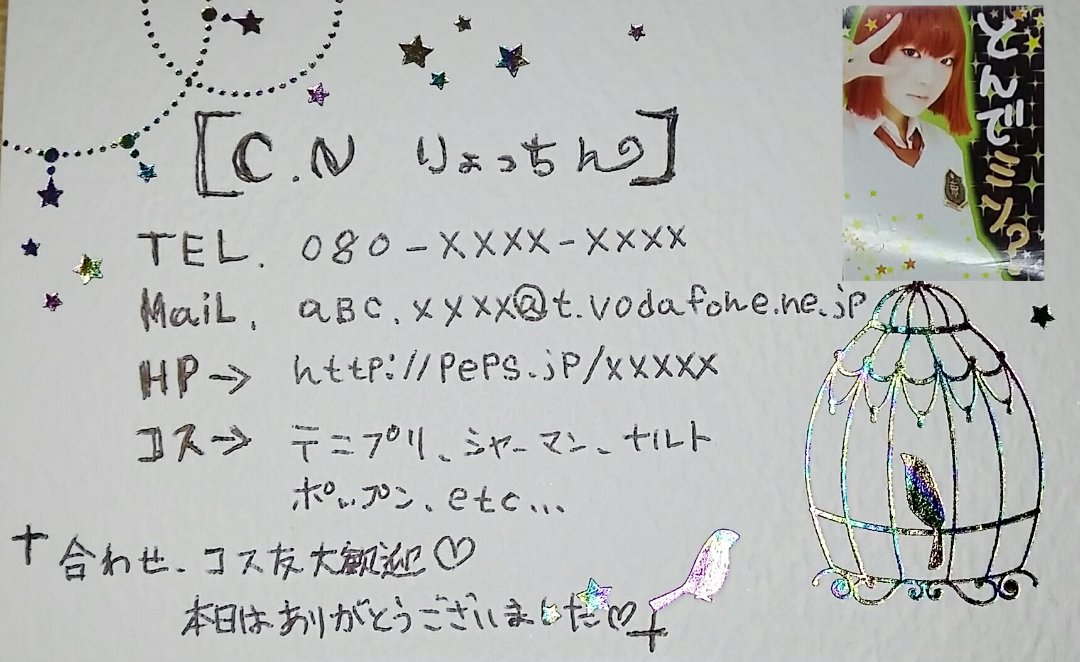 [C.N りょっちん]
TEL. 080-XXXX-XXXX
MaiL. aBC.xxxx@t.vodafone.ne.jp
HP→ http://peps.jp/xxxxx
コス→ テニプリ、シャーマン、ナルト
ポップン、etc...
合わせ、コス友大歓迎♡
本日はありがとうございました♡
とんでミン?